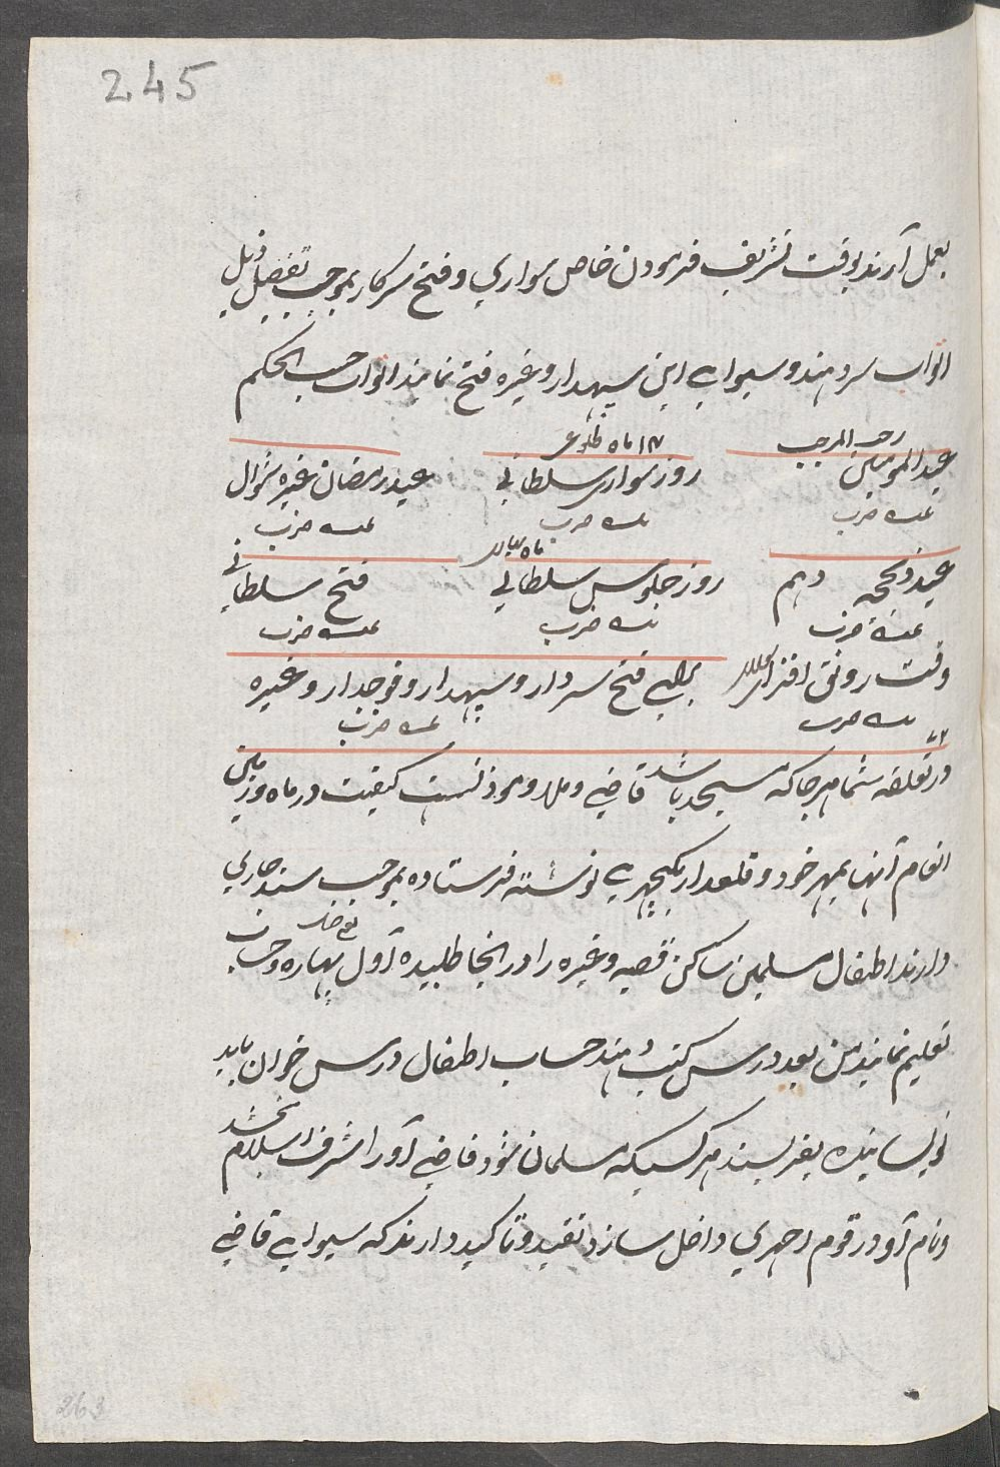 245
بعمل آرند بوقت تشریف فرمودن خاص سواری و فتح سرکار بموجب تفصیل ذیل
اتواب سر دهند و سیوای این سپهدار و غیره فتح نمایند اتواب حسب الحکم
رجب المرجب ۱۴ ماه طلوعی
عید المومنین روز سواری سلطانی عید رمضان غره شوال
ضرب ضرب ضرب
ماه
عید ذی حجه دهم روز جلوس سلطانی فتح سلطانی
ضرب ضرب ضرب
وقت رونق افزای برای فتح سردار و سپهدار و فوجدار و غیره
ضرب ضرب
در تعلقه شما هر جا که مسجد باشد قاضی و ملا و موذن است کیفیت در ماه و زمین
انعام آنها بمهر خود و قلعدار بکچهری نوشته فرستاده بموجب سند جاری
دارند اطفال مسلمین ساکن قصبه و غیره را در انجا طلبیده اول پهاره و حساب
تعلیم نمایند من بعد درس کتب دهند حساب اطفال درس خوان باید
نویسانیده بفریسند هر کسیکه مسلمان شود قاضی او را اشرف اسلام بخشد
و نام او در قوم احمدی داخل سازد تقید و تاکید دارند که سیوای قاضی
263